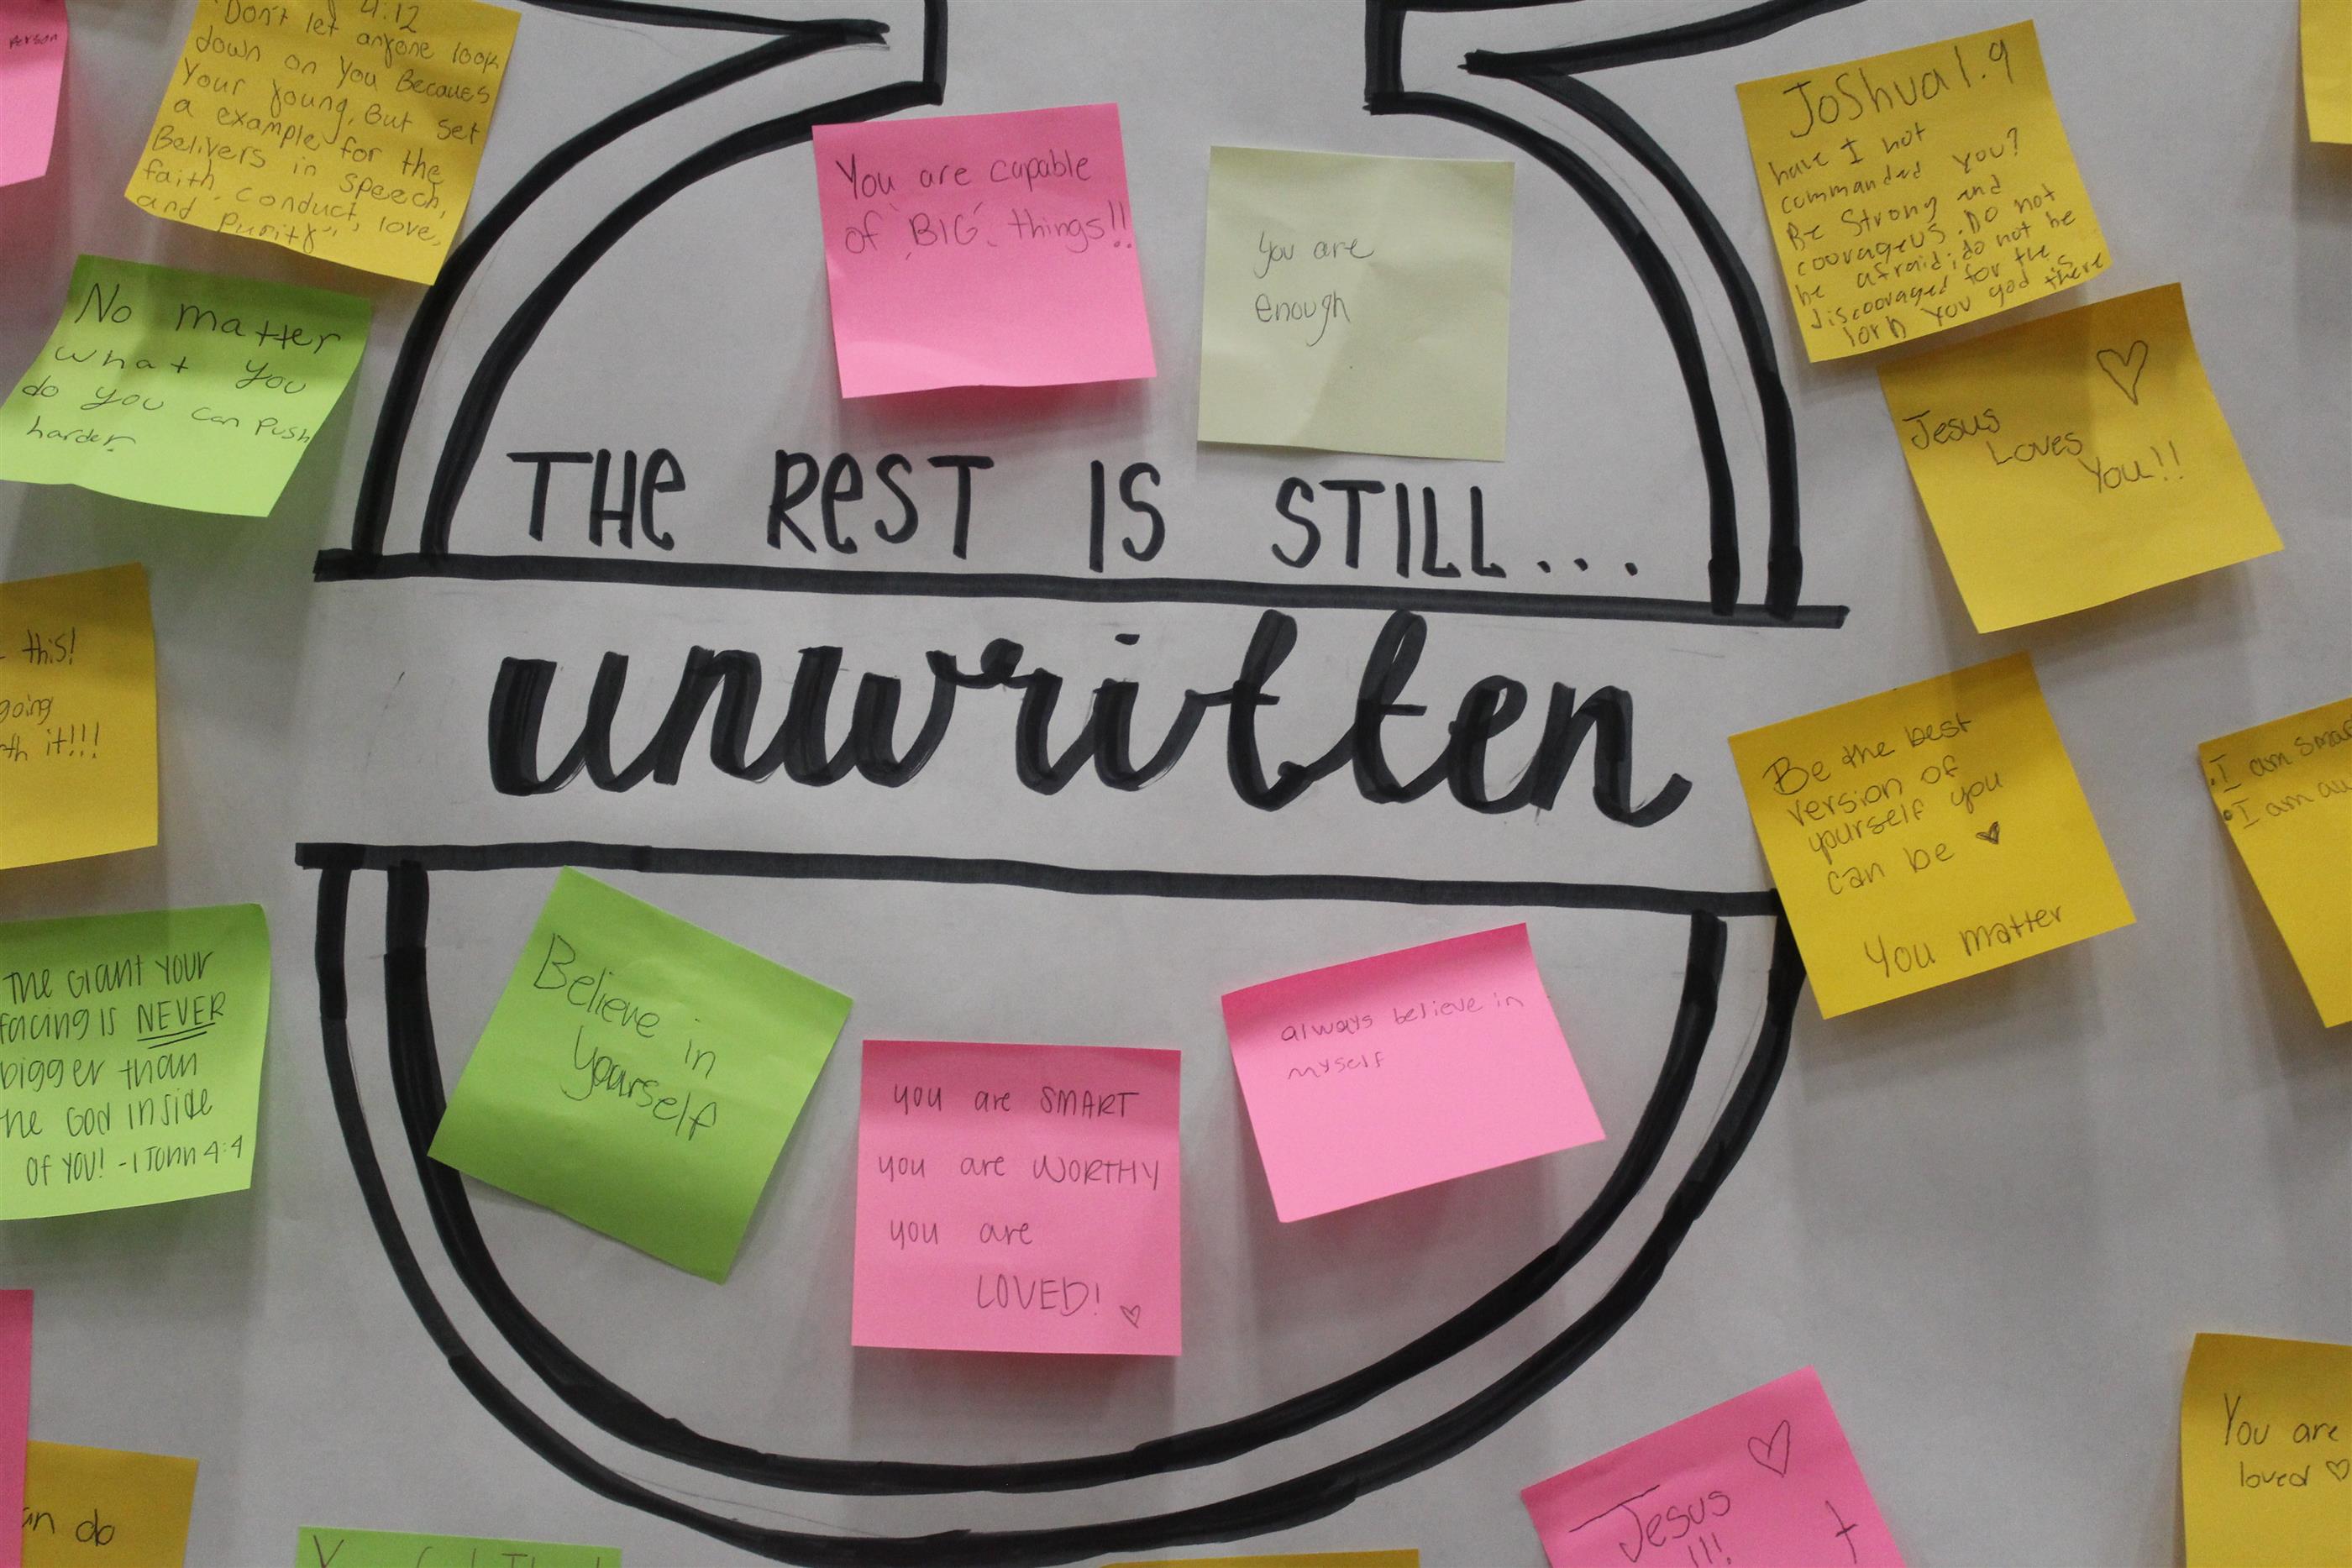 person
4:12
"Don't let anyone look
down on you Becaues
Your young, But set
a example for the
Belivers in speech,
faith, conduct, love,
and Purity"
No matter
what you
do you can push
harder.
You are capable
of BIG things!!
you are
enough
Joshua 1.9
have I not
commanded you?
Be Strong and
couvrageus. Do not
be afraid; do not be
discouraged for the
lorD you god is there
Jesus
Loves
You!!
THe ReST IS STILL...
unwritten
this!
going
it!!!
Be the best
version of
yourself you
can be
You matter
.I am smar
•I am
THE GIANT YOUR
facing IS NEVER
bigger than
he God inside
OF YOU! -1 John 4:4
Believe in
yourself
you are SMART
you are WORTHY
you are
LOVED!
always believe in
myself
do
Jesus
!!!
You are
loved